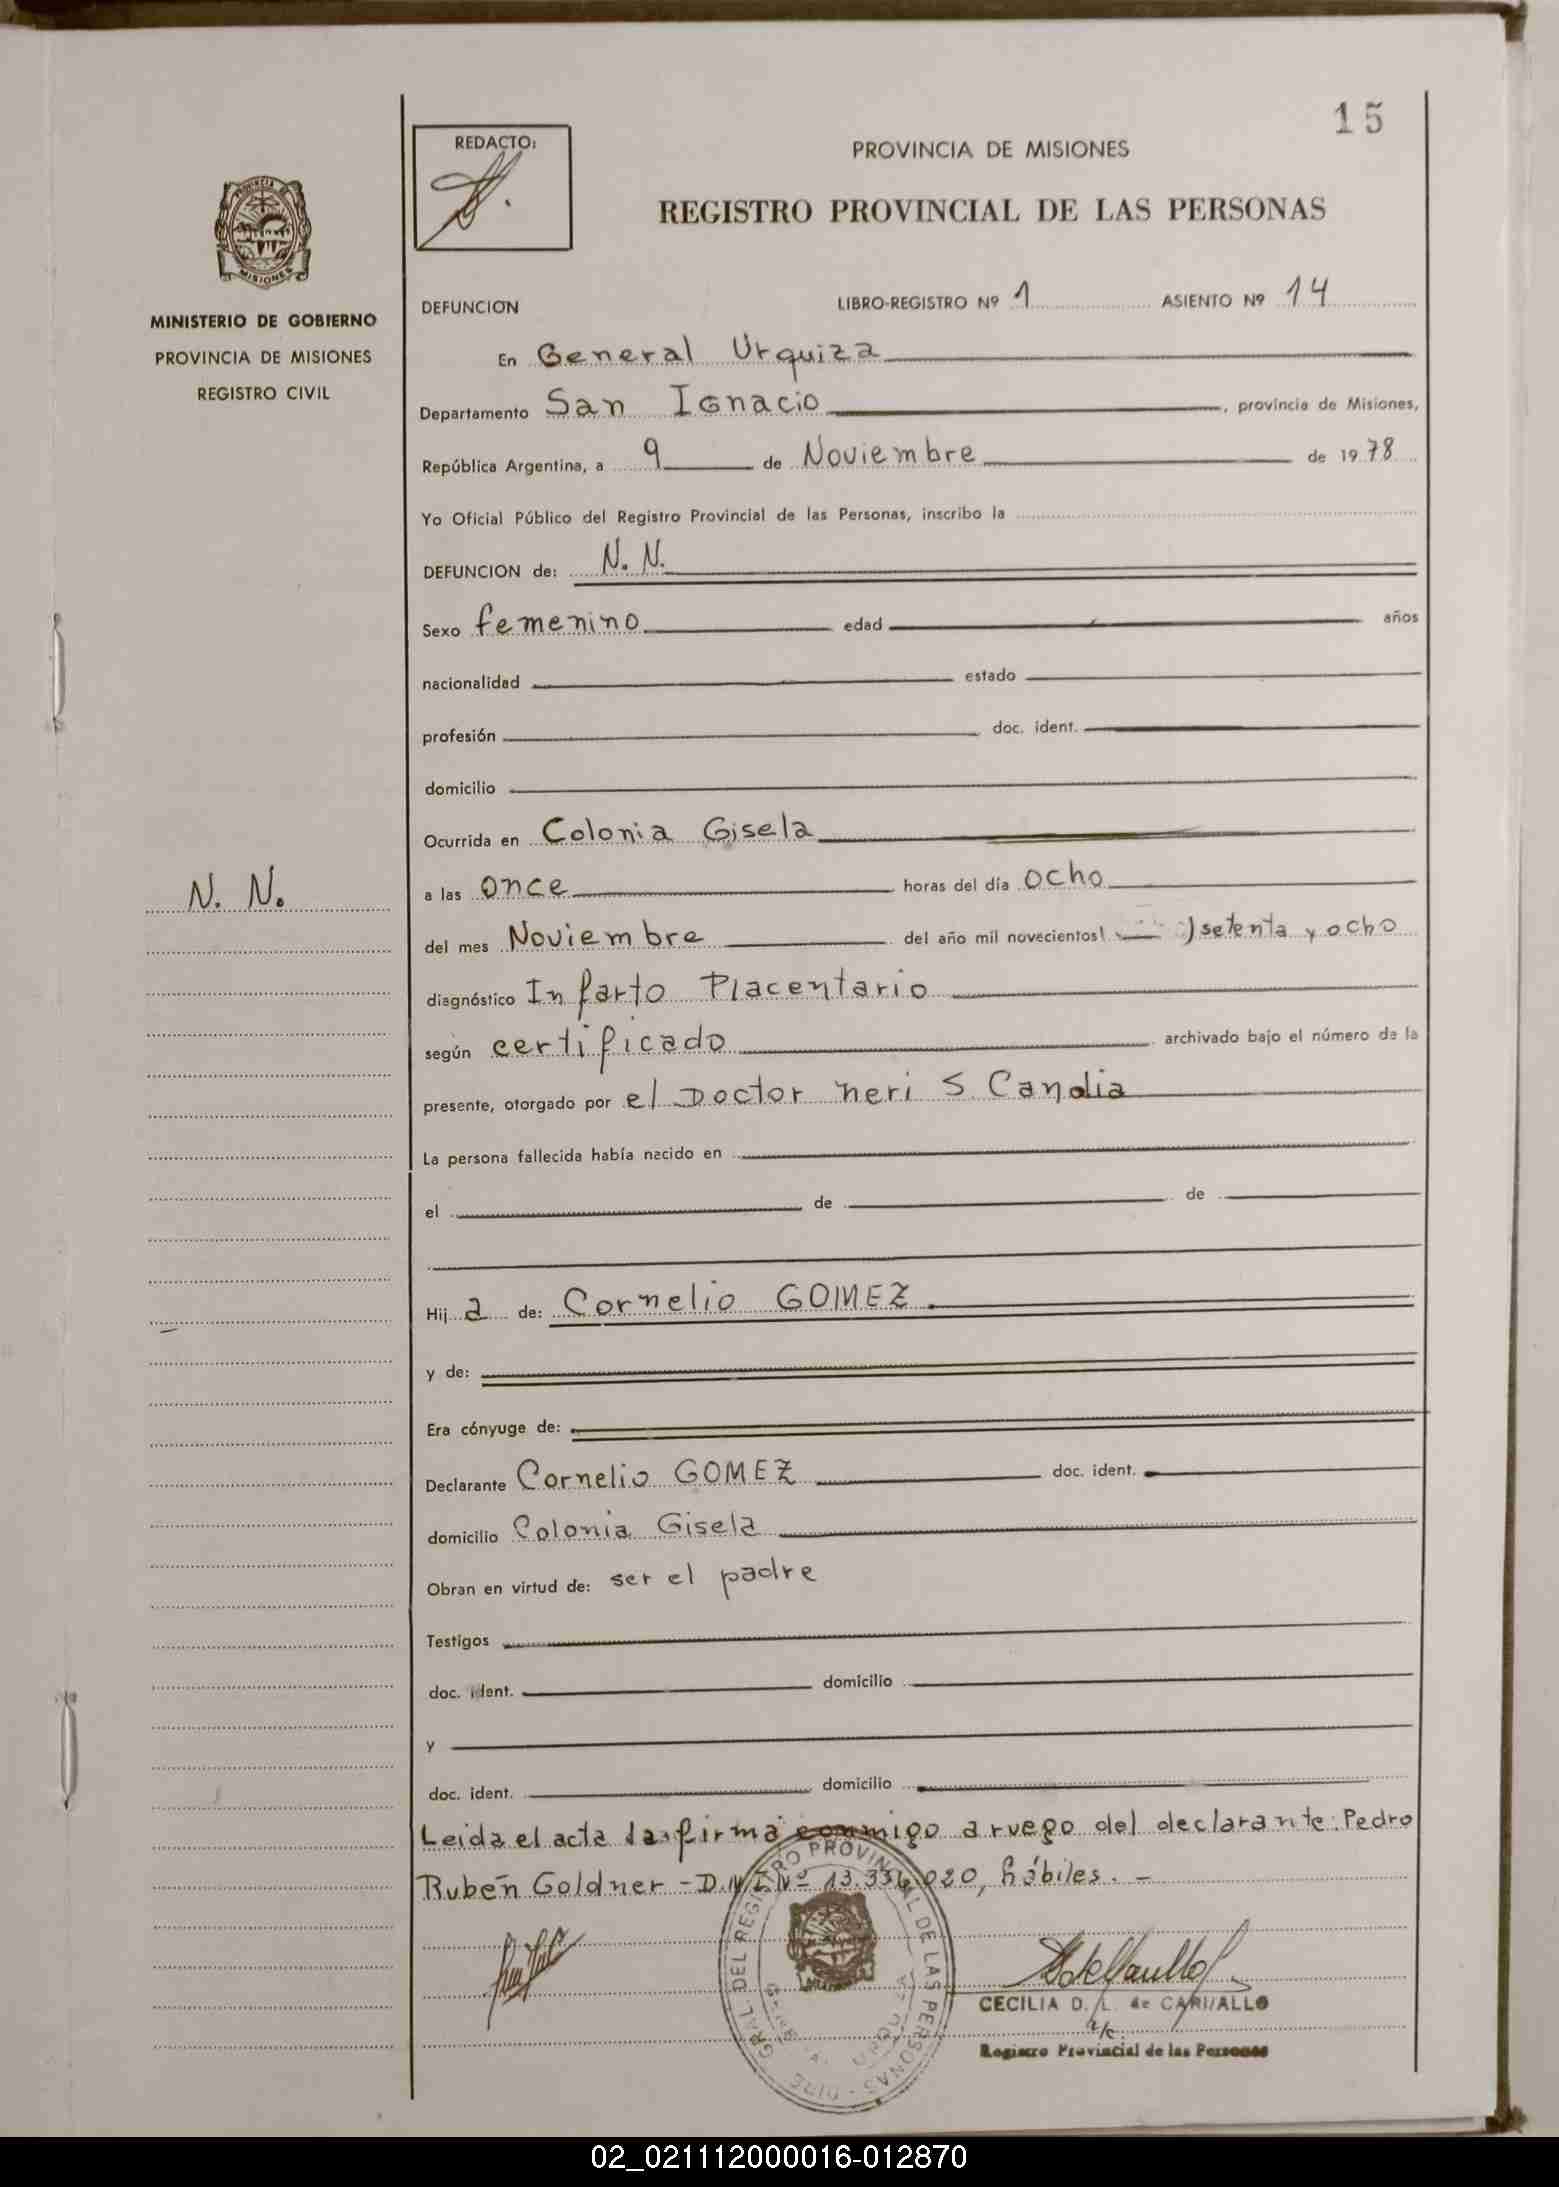 15
REDACTO:
PROVINCIA DE MISIONES
REGISTRO PROVINCIAL DE LAS PERSONAS
PROVINCIA DE
MISIONES
MINISTERIO DE GOBIERNO
PROVINCIA DE MISIONES
REGISTRO CIVIL
DEFUNCION LIBRO-REGISTRO Nº 1 ASIENTO Nº 14
En General Urquiza
Departamento San Ignacio, provincia de Misiones,
República Argentina, a 9 de Noviembre de 1978
Yo Oficial Público del Registro Provincial de las Personas, inscribo la
DEFUNCION de: N. N.
Sexo femenino edad años
nacionalidad estado
profesión doc. ident.
domicilio
Ocurrida en Colonia Gisela
N. N.
a las once horas del día ocho
del mes Noviembre del año mil novecientos ) setenta y ocho
diagnóstico Infarto Placentario
según certificado archivado bajo el número de la
presente, otorgado por el Doctor neri S. Candia
La persona fallecida había nacido en
el de de
Hij a de: Cornelio GOMEZ.
y de:
Era cónyuge de:
Declarante Cornelio GOMEZ doc. ident.
domicilio Colonia Gisela
Obran en virtud de: ser el padre
Testigos
doc. ident. domicilio
y
doc. ident. domicilio
Leida el acta la firma conmigo a ruego del declarante: Pedro
Ruben Goldner - D.N.I Nº 13.334.020, hábiles. -
DIRE GRAL DEL REGISTRO PROVINCIAL DE LAS PERSONAS
GENERAL URQUIZA
CECILIA D. L. de CARVALLO
a/c.
Registro Provincial de las Personas
02_021112000016-012870